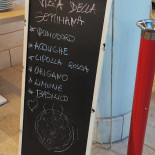 PIZZA DELLA
SETTIMANA
* POMODORO
* ACCIUGHE
* CIPOLLA ROSSA
* ORIGANO
* LIMONE
* BASILICO